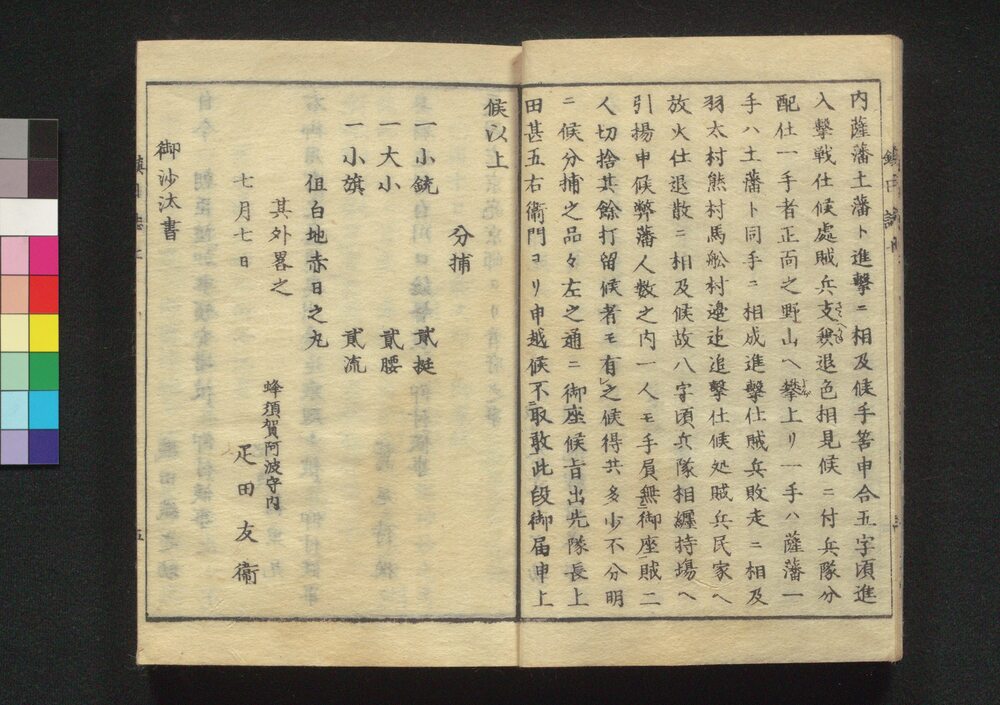 内薩藩土藩ト進撃ニ相及候手筈申合五字頃進
入撃戦仕候處賊兵支兼退色相見候ニ付兵隊分
配仕一手者正面之野山ヘ攀上リ一手ハ薩藩一
手ハ土藩ト同手ニ相成進撃仕賊兵敗走ニ相及
羽太村熊村馬舩村邉迠追撃仕候処賊兵民家ヘ
放火仕退散ニ相及候故八字頃兵隊相纒持場ヘ
引揚申候弊藩人数之内一人モ手負無御座賊二
人切捨其餘打留候者モ有之候得共多少不分明
ニ候分捕之品々左之通ニ御座候旨出先隊長上
田甚五右衞門ヨリ申越候不取敢此段御届申上
候以上
分捕
一小銃 貳挺
一大小 貳腰
一小旗 貳流
但白地赤日之丸
其外畧之
蜂須賀阿波守内
七月七日 疋田友衞
御沙汰書
五